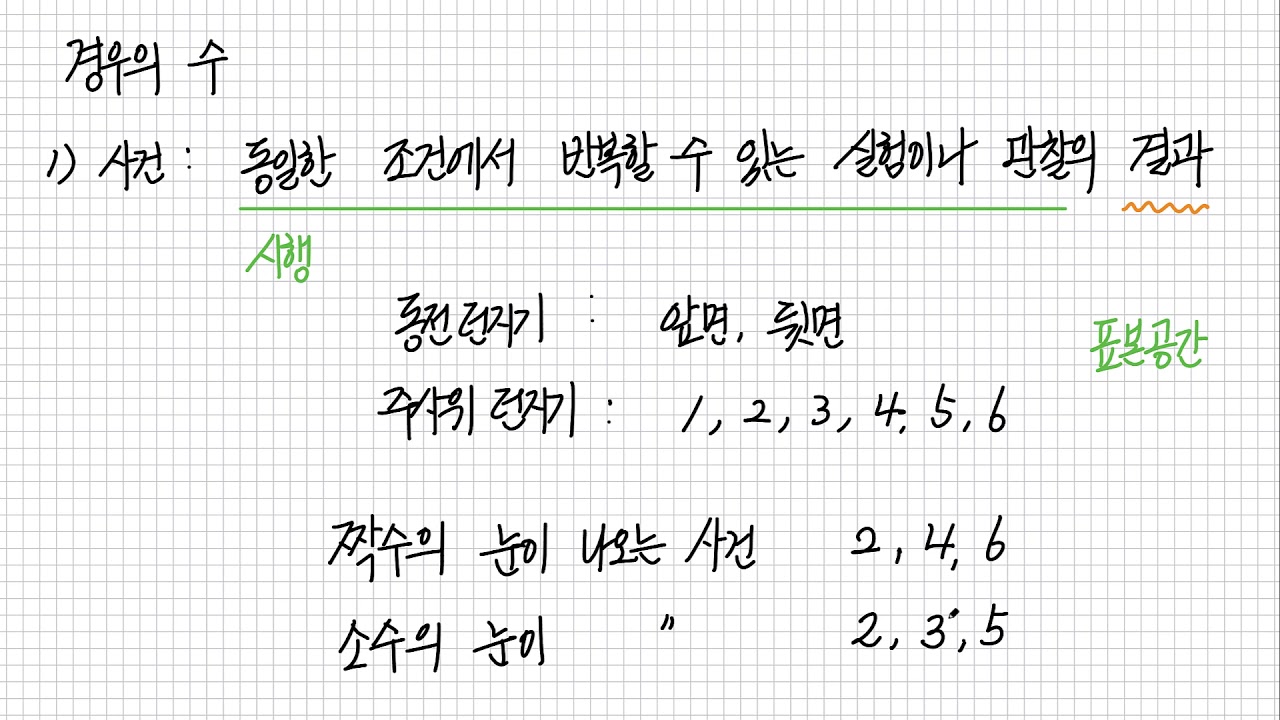 경우의 수
1) 사건 : 동일한 조건에서 반복할 수 있는 실험이나 관찰의 결과
시행
동전 던지기 : 앞면, 뒷면
표본공간
주사위 던지기 : 1, 2, 3, 4, 5, 6
짝수의 눈이 나오는 사건 2, 4, 6
소수의 눈이 〃 2, 3, 5